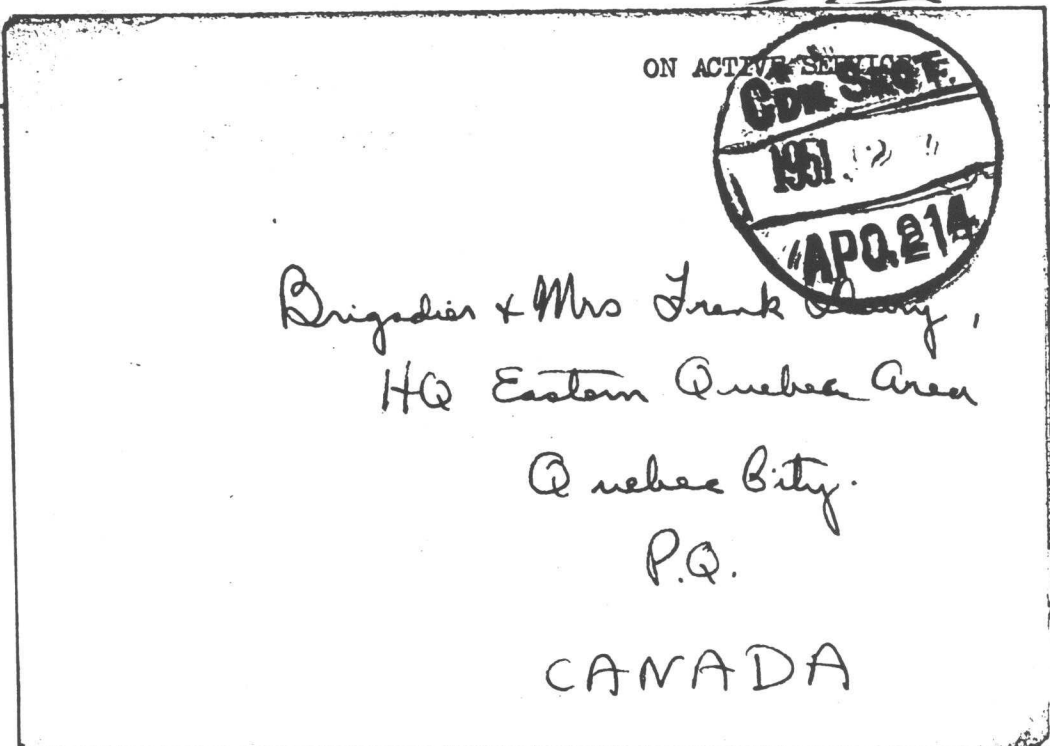 ON ACTIVE SERVICE
CDN SECT.
1951
APO.214
Brigadier & Mrs Frank
HQ Eastern Quebec Area
Quebec City.
P.Q.
CANADA